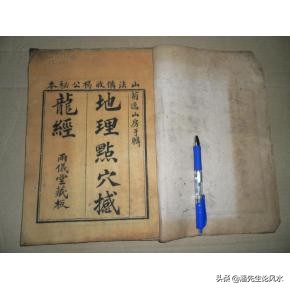 山法備收楊公秘本
菊逸山房手輯
地理點穴撼
龍經
兩儀堂藏板
头条 @潘先生论风水